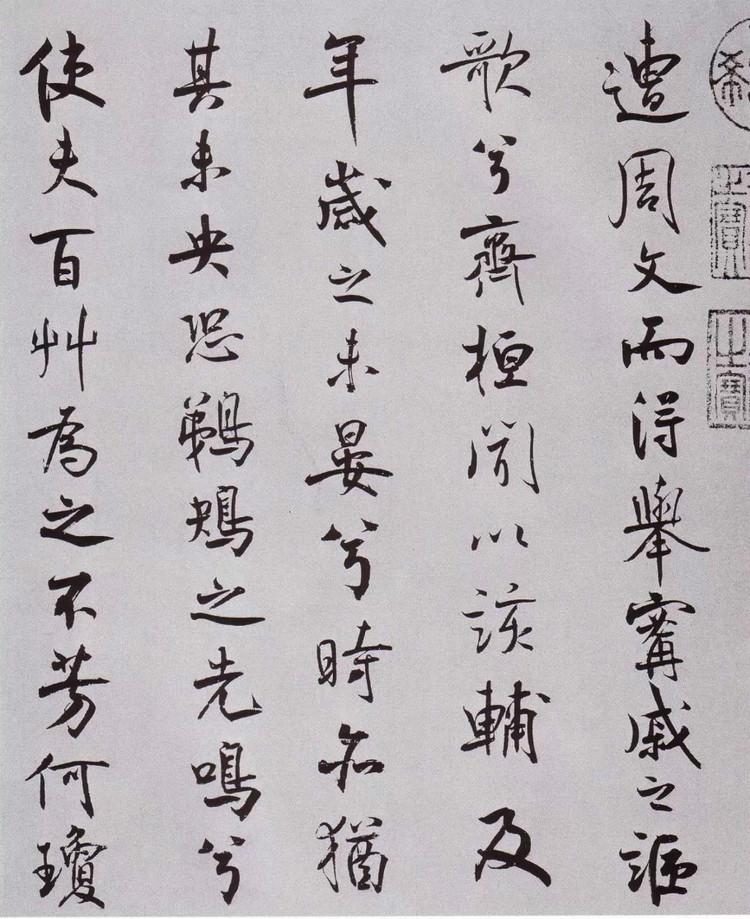 遭周文而得舉甯戚之謳
歌兮齊桓聞以該輔及
年歲之未晏兮時亦猶
其未央恐鵜鴃之先鳴兮
使夫百艸為之不芳何瓊